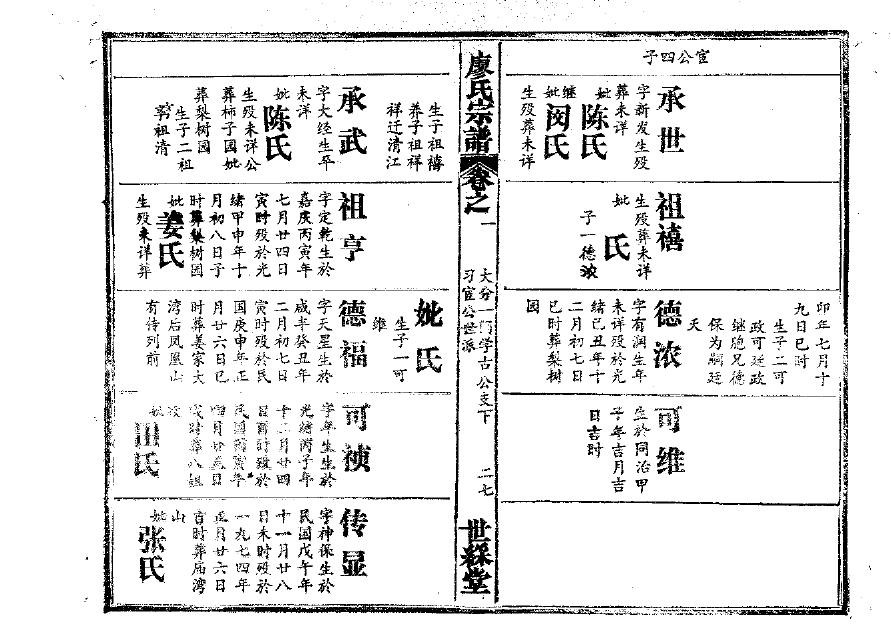 宦公四子
承世
字新发生殁
葬未详
妣
陈氏
继
妣
闵氏
生殁葬未详
祖禧
生殁葬未详
妣
氏
子一德浓
卯年七月十
九日巳时
生子二可
政可廷政
继胞兄德
保为嗣廷
夭
德浓
字有润生年
未详殁於光
绪己丑年十
二月初七日
巳时葬梨树
园
可维
生於同治甲
子年吉月吉
日吉时
廖氏宗谱
卷之一
大分一门学古公支下
习宦公世派
二七
世綵堂
生子祖禧
养子祖祥
祥迁清江
承武
字大经生卒
未详
妣
陈氏
生殁未详公
葬柿子园妣
葬梨树园
生子二祖
亨祖清
祖亨
字定乾生於
嘉庆丙寅年
七月廿四日
寅时殁於光
绪甲申年十
月初八日子
时葬梨树园
妣
姜氏
生殁未详葬
妣氏
生子一可
维
德福
字天星生於
咸丰癸丑年
二月初七日
寅时殁於民
国庚申年正
月廿六日巳
时葬姜家大
湾后凤凰山
有传列前
可祯
字年生生於
光绪丙子年
十二月廿四
日酉时殁於
民国丙寅年
四月廿五日
时葬八组
妣
田氏
传显
字神保生於
民国戊午年
十一月廿八
日未时殁於
一九七四年
正月廿六日
酉时葬庙湾
山
妣
张氏